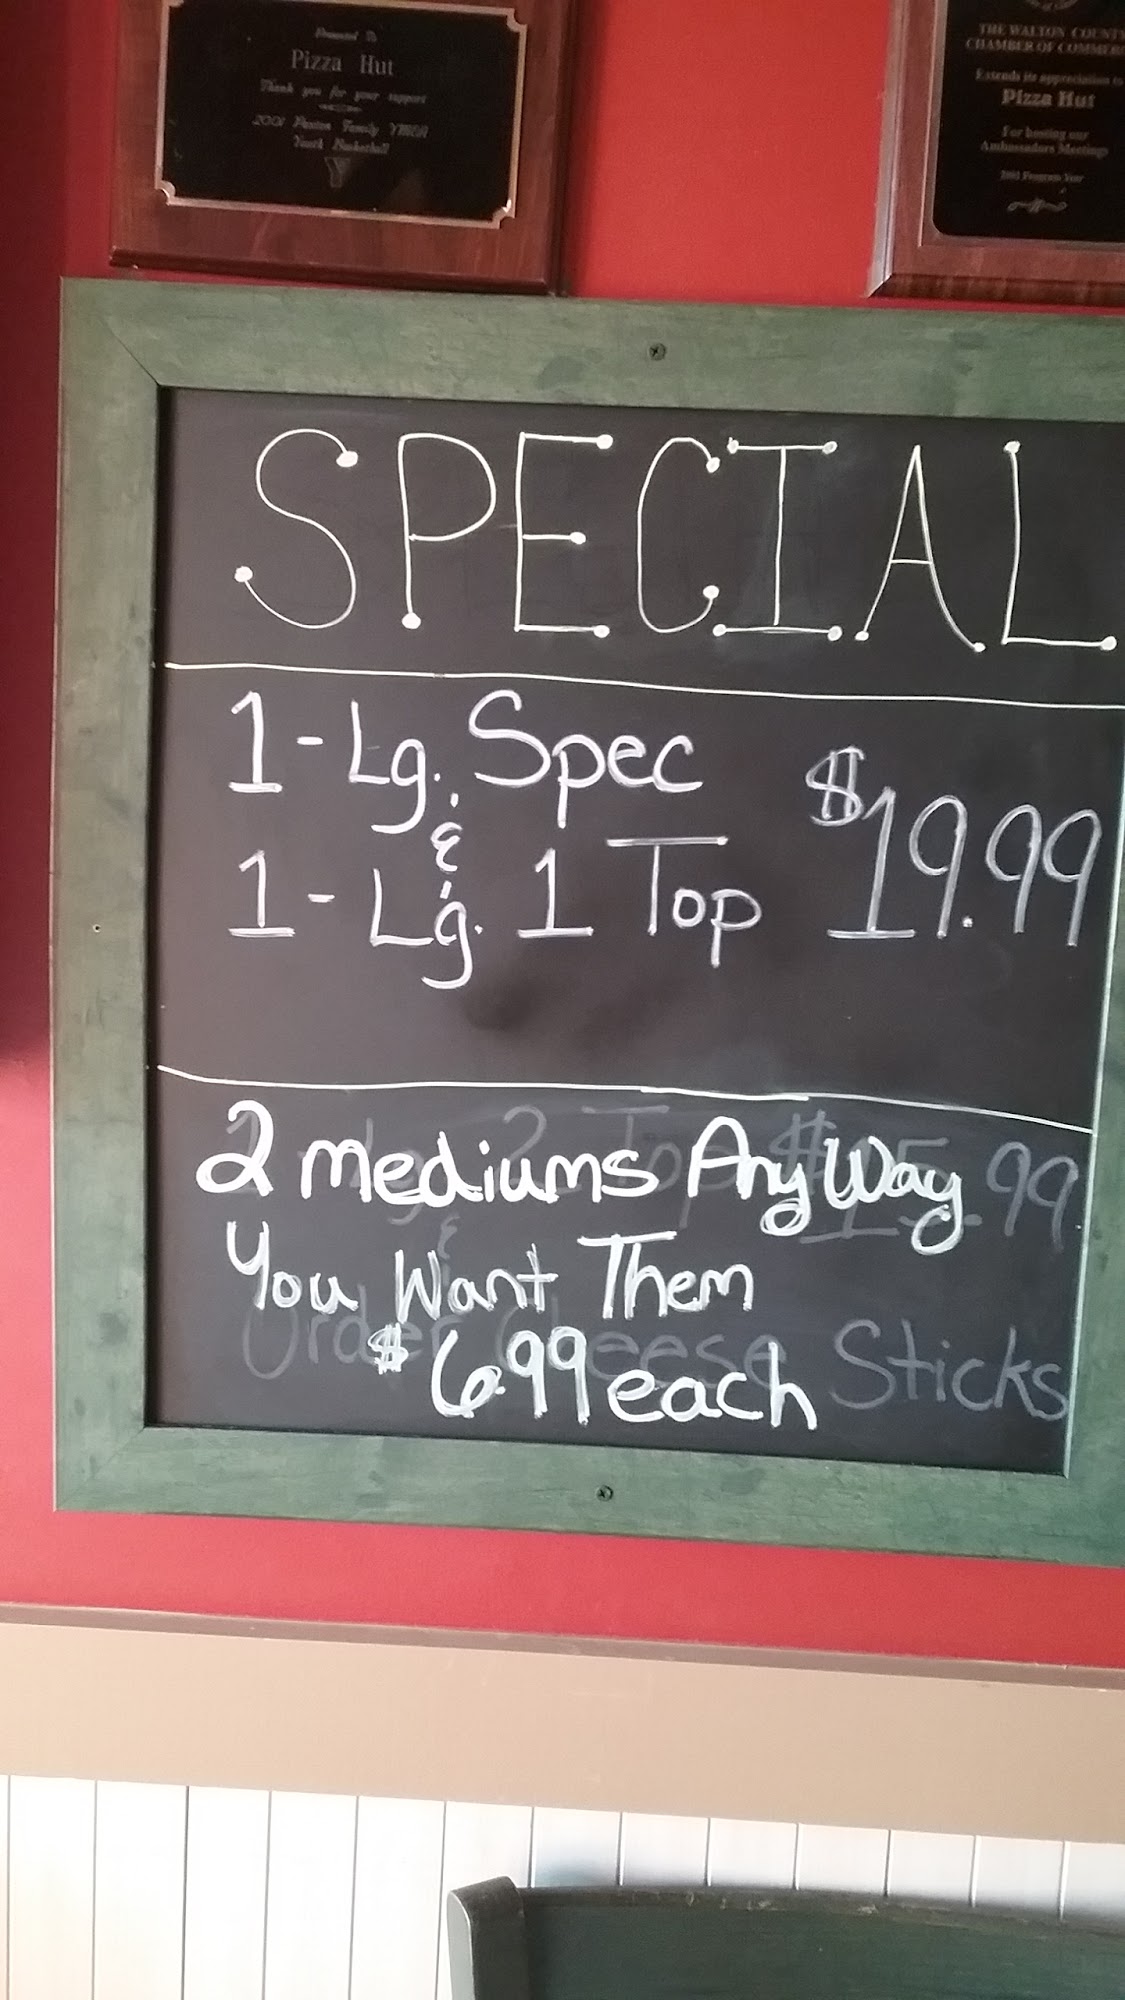 Presented To
Pizza Hut
Thank you for your support
2001 Family YMCA
Youth Basketball
THE WALTON COUNTY
CHAMBER OF COMMERCE
Extends its appreciation to
Pizza Hut
For hosting our
Ambassadors Meetings
2001 Program Year
SPECIAL
1-Lg. Spec
&
$19.99
1-Lg. 1 Top
2 mediums Any Way
You Want Them
$6.99 each
2 Top $15.99
&
Order Cheese Sticks